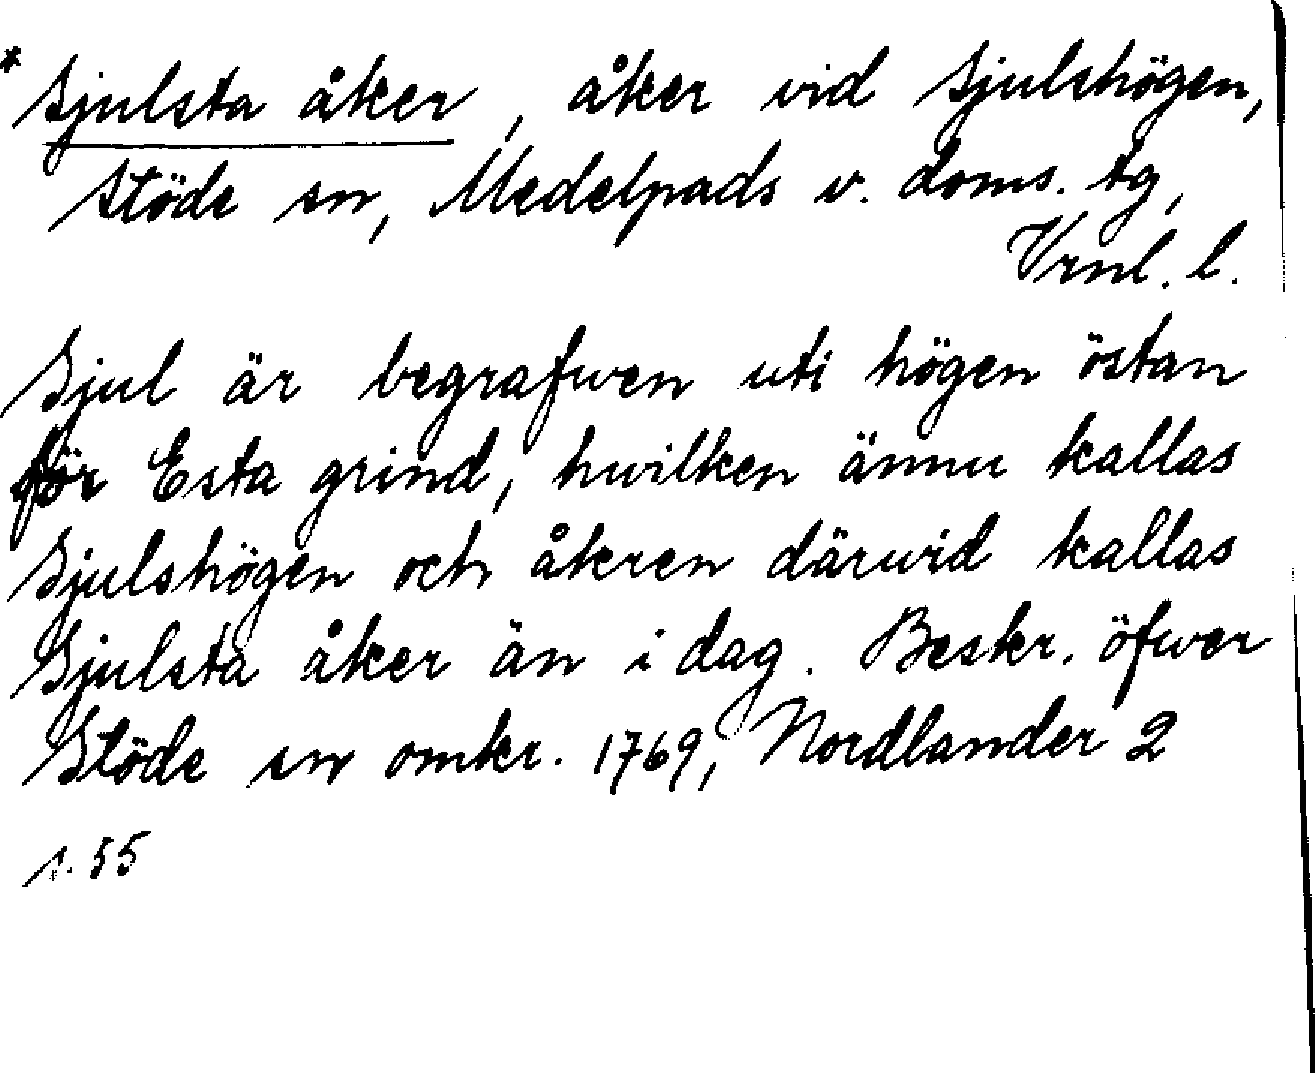 * Sjulsta åker, åker vid Sjulshögen,
Stöde sn, Medelpads v. doms. tg,
Vrnl. l.
Sjul är begrafwen uti högen östan
för Esta grind, hwilken ännu kallas
Sjulshögen och åkren därwid kallas
Sjulsta åker än i dag. Beskr. öfwer
Stöde sn omkr. 1769, Nordlander 2
s. 55